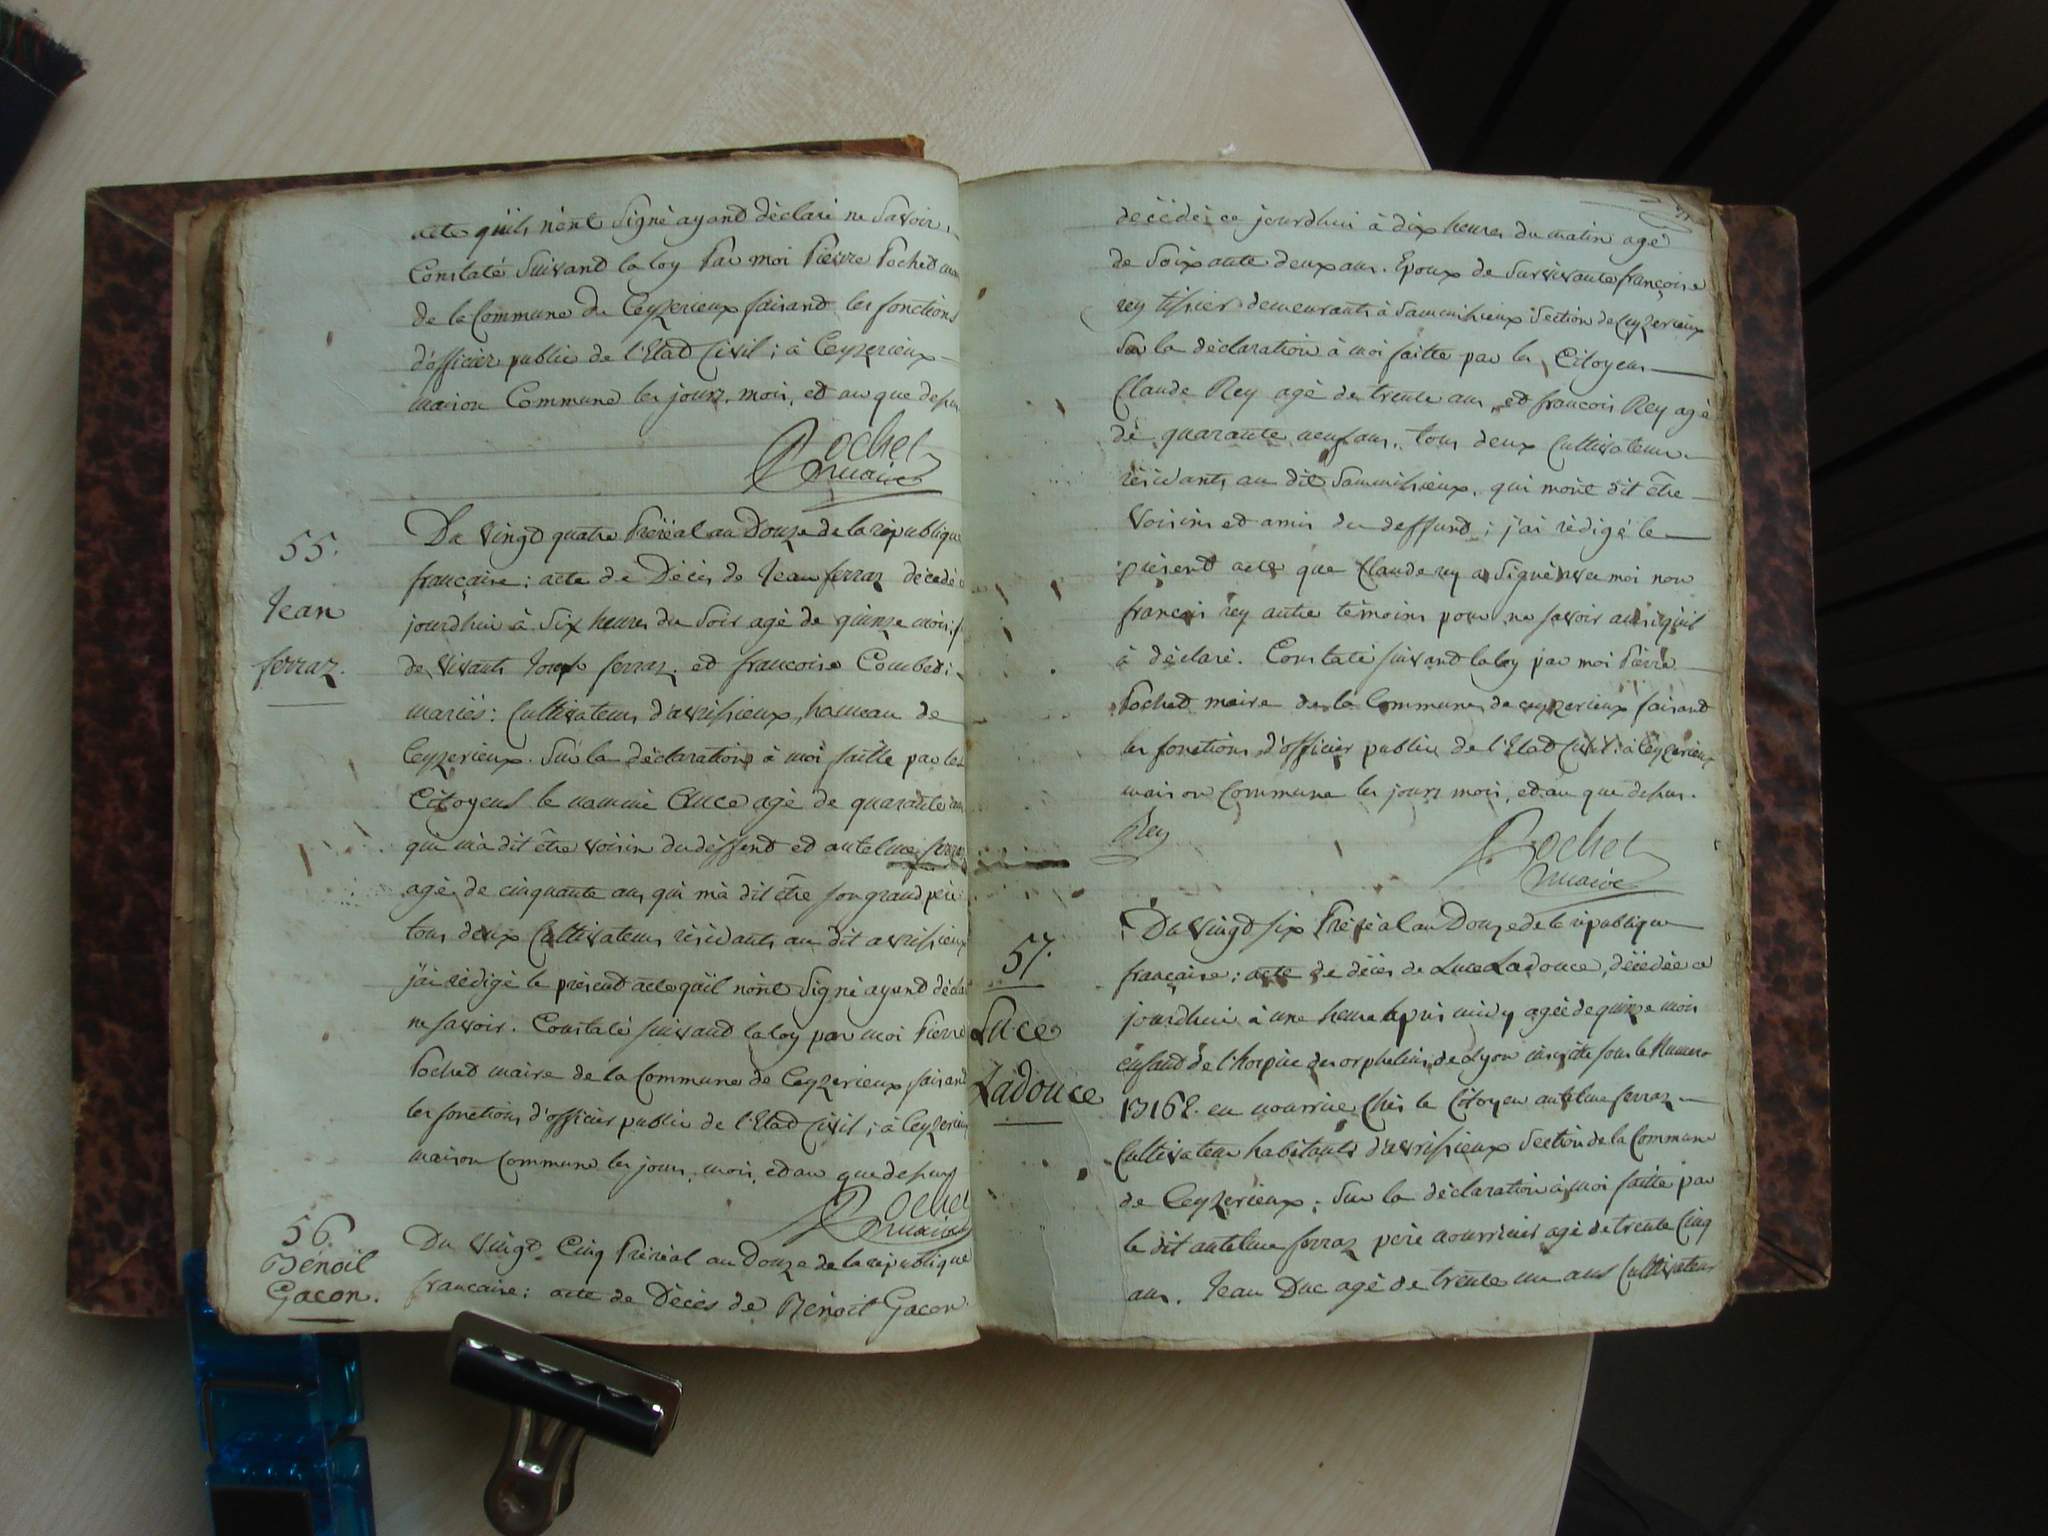 acte qu'ils n'ont Signé ayant déclaré ne Savoir
Constaté Suivant la loy Par moi Pierre Pochet
de la Commune de Ceyzerieux faisant les fonctions
d'officier public de l'Etat Civil ; à Ceyzerieux
maison Commune les jours, mois, et an que dessus
Pochet
maire
55.
Jean
ferraz.
Du Vingt quatre Préréal an Douze de la république
française ; acte de Décès de Jean ferraz décédé
jourdhui à Six heures du Soir agé de quinze mois
de Vivants Joseph ferraz et francoise Combet
mariés : Cultivateurs d'avrissieux, hameau de
Ceyzerieux. Sur la déclaration à moi faitte par les
Citoyens le nommé Cluce agé de quarante
qui m'a dit être voisin du deffunt et antelme ferraz
agé de cinquante ans qui m'a dit être son grand père
tous deux Cultivateurs résidants au dit avrissieux
j'ai rédigé le présent acte quil n'ont Signé ayant
ne savoir. Constaté suivant la loy par moi Pierre
Pochet maire de la Commune de Ceyzerieux faisant
les fonctions d'officier public de l'Etat Civil ; à Ceyzerieux
maison Commune les jours, mois, et an que dessus
Pochet
maire
56.
Bénoit
Gacon.
Du Vingt Cinq Préréal an Douze de la république
francaise ; acte de Décès de Bénoit Gacon
décédé ce jourdhui à dix heures du matin agé
de Soixante deux ans. Epoux de Survivante françoise
rey tissier demeurants à Sammihieux Section de Ceyzerieux
Sur la déclaration à moi faitte par les Citoyens
Claude Rey agé de trente ans et francois Rey agé
de quarante neuf ans, tous deux Cultivateurs
résidants au dit Sammihieux, qui m'ont dit être
Voisins et amis du deffunt ; j'ai rédigé le
présent acte que Claude rey a Signé avec moi non
françois rey autre témoins pour ne savoir ainsi quil
à déclaré. Constaté suivant la loy par moi Pierre
Pochet maire de la Commune de Ceyzerieux faisant
les fonctions d'officier public de l'Etat Civil : à Ceyzerieux
maison Commune les jours mois, et an que dessus.
Rey
Pochet
maire
57.
Luce
Ladouce
Du Vingt six Préréal an Douze de la république
française ; acte de décès de Luce Ladouce, décédée ce
jourdhui à une heure après midy agée de quinze mois
enfant de l'hospice des orphelins de Lyon inscritte sous le Numero
en nourrice Chés le Citoyen antelme ferraz
Cultivateur habitants d'avrissieux Section de la Commune
de Ceyzerieux ; Sur la déclaration à moi faitte par
le dit antelme ferraz père nourricier agé de trente Cinq
ans. Jean Duc agé de trente un ans Cultivateur